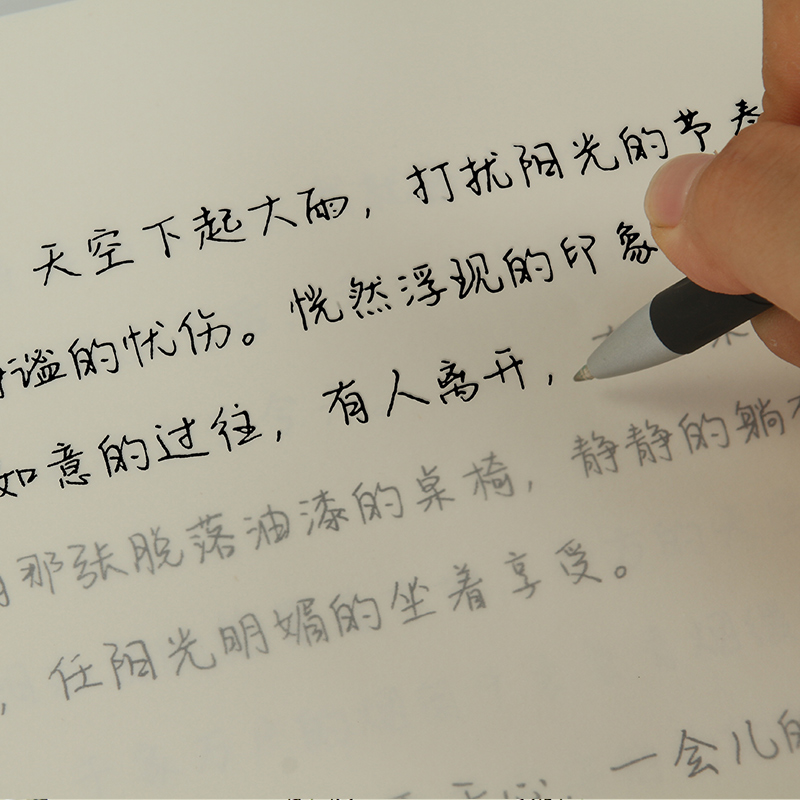 天空下起大雨，打扰阳光的节奏
谧的忧伤。恍然浮现的印象
如意的过往，有人离开，
那张脱落油漆的桌椅，静静的躺
，任阳光明媚的坐着享受。
一会儿的